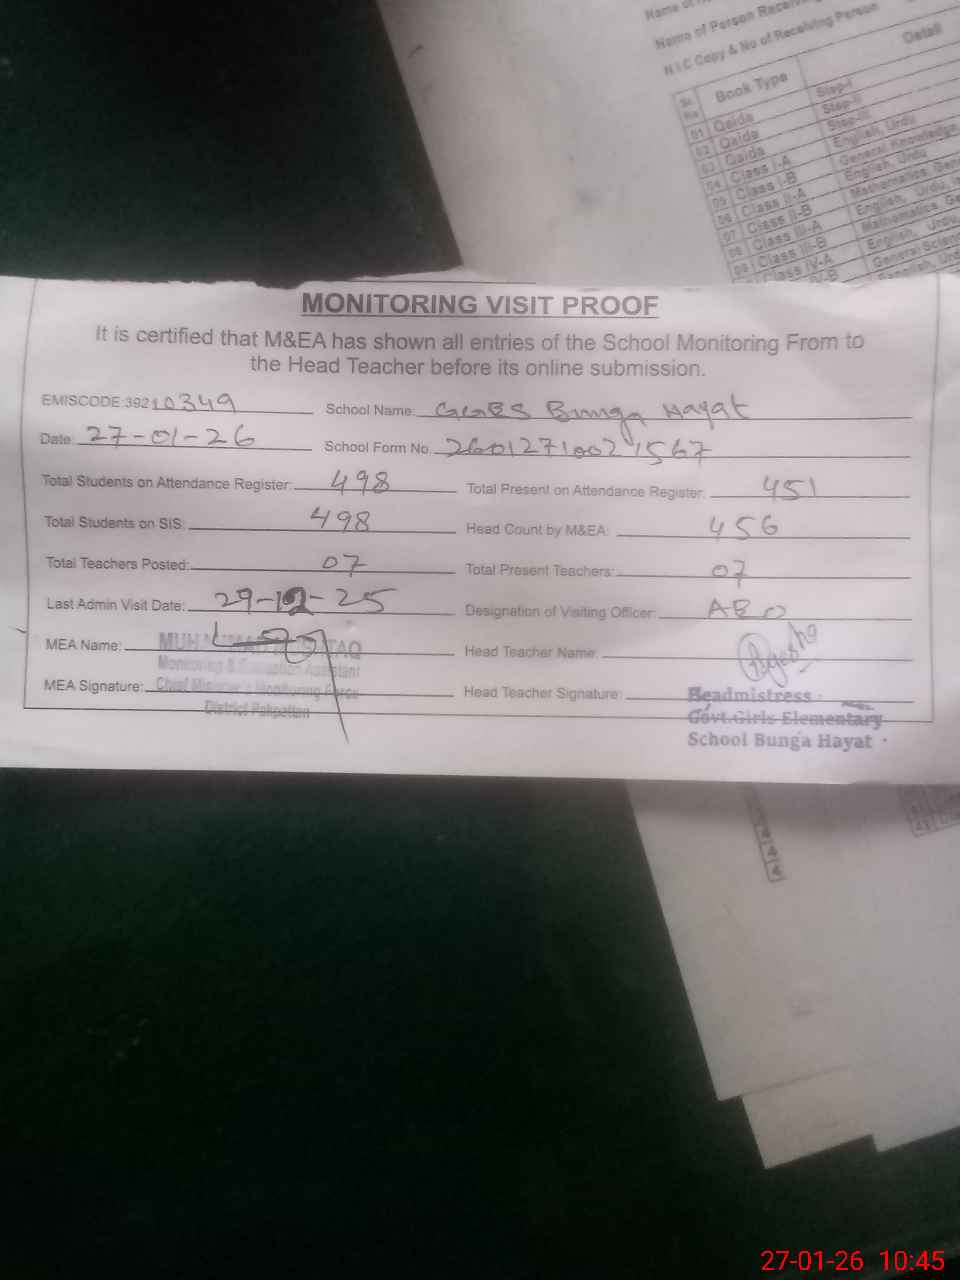 Name of
Name of Person Receiving
N.I.C Copy & No of Receiving Person
Sr. No Book Type Detail
01 Qaida Step-I
02 Qaida Step-II
03 Qaida Step-III
04 Class I-A English, Urdu
05 Class I-B General Knowledge
06 Class II-A English, Urdu
07 Class II-B Mathematics, Gen
08 Class III-A English, Urdu,
09 Class III-B Mathematics Ge
Class IV-A English, Urdu
IV-B General Scien
English, Urd
MONITORING VISIT PROOF
It is certified that M&EA has shown all entries of the School Monitoring From to
the Head Teacher before its online submission.
EMISCODE:39210349 School Name: GGES Bunga Hayat
Date: 27-01-26 School Form No. 26012710021567
Total Students on Attendance Register: 498 Total Present on Attendance Register: 451
Total Students on SIS: 498 Head Count by M&EA: 456
Total Teachers Posted: 07 Total Present Teachers: 07
Last Admin Visit Date: 29-12-25 Designation of Visiting Officer: AEO
MEA Name: Head Teacher Name:
Monitoring & Evaluation Assistant
MEA Signature: Chief Minister's Monitoring Force Head Teacher Signature: Headmistress
District Pakpattan Govt.Girls Elementary
School Bunga Hayat
4
4
4
27-01-26 10:45